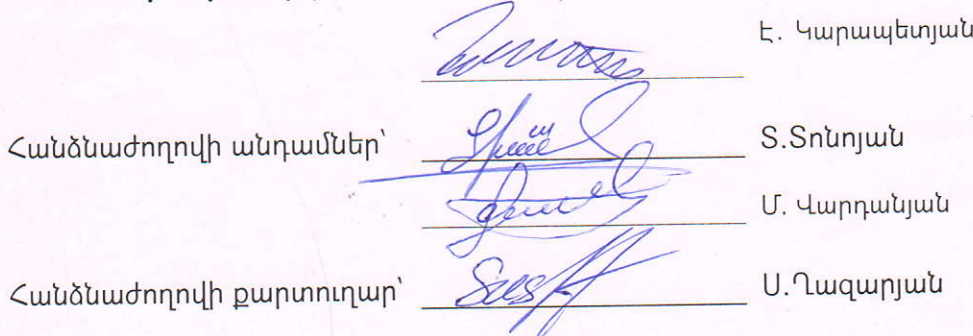 Է. Կարապետյան
Հանձնաժողովի անդամներ՝ Տ.Տոնոյան
Մ. Վարդանյան
Հանձնաժողովի քարտուղար՝ Ս.Ղազարյան